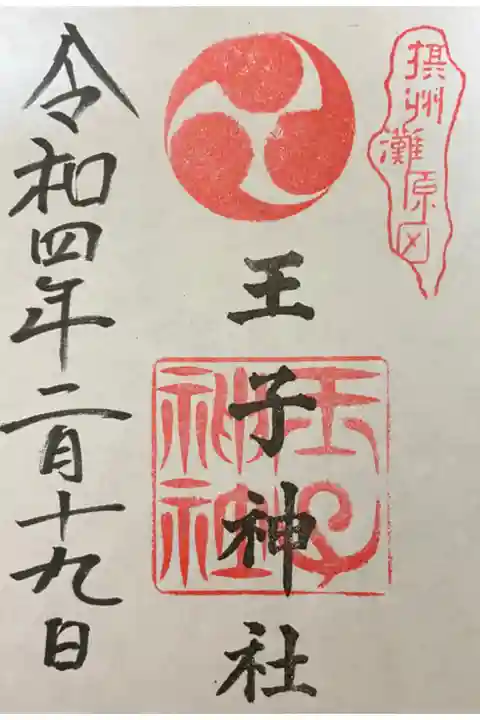 摂州灘原田
王子神社
王子神社
令和四年二月十九日